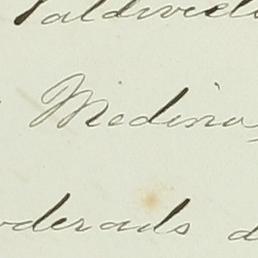 Valdivieso
Medina,
oderado d